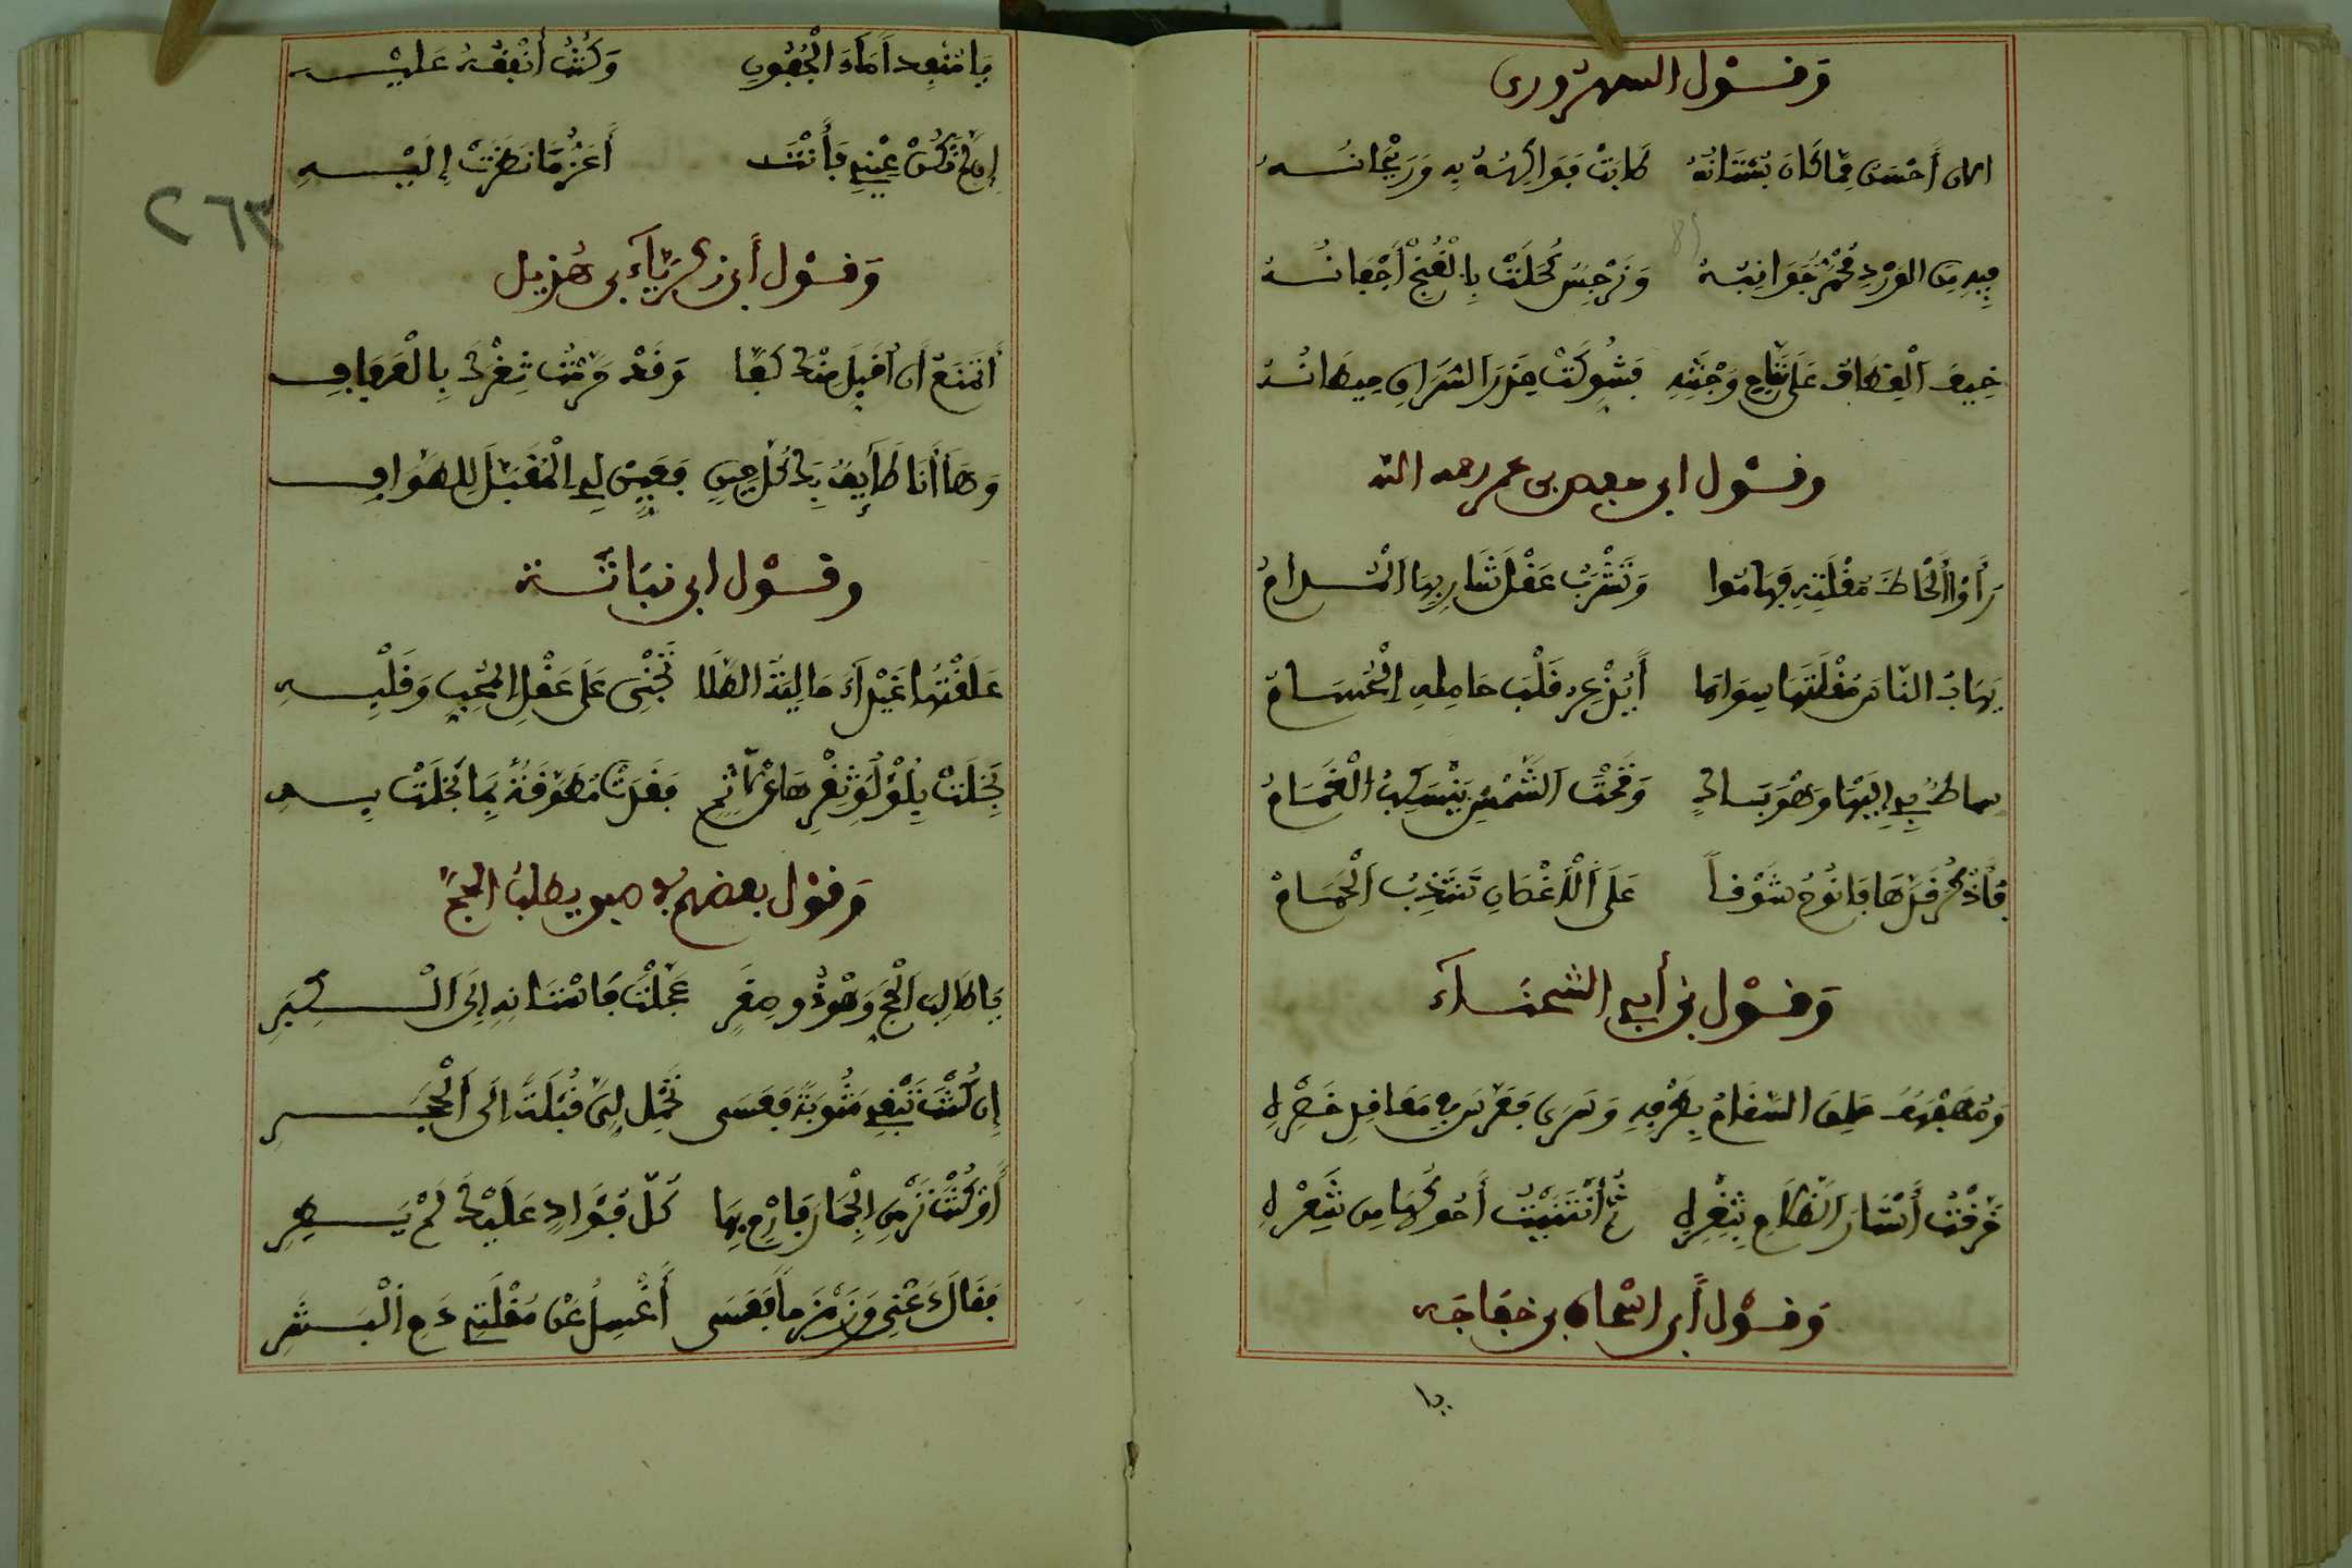 وقول السهروردى
أحسن مما كان بستانه طابت فواكهه به وريحانه
فيه من الورد محمر جوانبه ونرجس كحلت بالغنج أجفانه
خيف القطاف على تفاح وجنته فشوكت
وقول ابى حفص بن عمر رحمه الله
رأوا ألحاظ مقلته فهاموا وتشرب عقل شاربها المدام
يهاب الناس مقلتها سواها أيذعر قلب حامله الحسام
سما طرفى إليها وهو باك وتحت الشمس ينسكب الغمام
وأذكر قدها فأنوح شوقا على الأغصان تنتدب الحمام
وقول بن أبى الشخباء
ومهفهف علق السقام بطرفه وسرى فعرس فى معاقل خصره
مزقت أستار الظلام بثغره ثم أنثنيت أحوكها من شعره
وقول أبى اسحاق بن خفاجه
يا
يا منفدا ماء الجفون وكنت أنفقه عليه
إن لم تكن عينى فأنت أعز ما نظرت إليه
وقول أبى زكرياء بن هزيل
أتمنع أن أقبل منك كفا وقد ثغرك بالعفاف
وها أنا طائف بك كل حين ففيض لى المقبل للطواف
وقول ابن نباتة
علقتها غيداء حالية الطلا تجنى على عقل المحب وقلبه
بخلت بلؤلؤ ثغرها عن لاثم فغدت مطوقة بما بخلت به
وقول بعضهم فى صبى يطلب الحج
يا طالب الحج وهو ذو صغر عجلت فاستانه إلى الكبر
إن كنت تبغى مثوبة فعسى تحمل لى قبلة إلى الحجر
أو كنت ترمى الجمار فارم بها كل فؤاد عليك لم يطر
فقال عنى وزمزما فعسى أغسل عن مقلتى دم البشر
٢٦٣